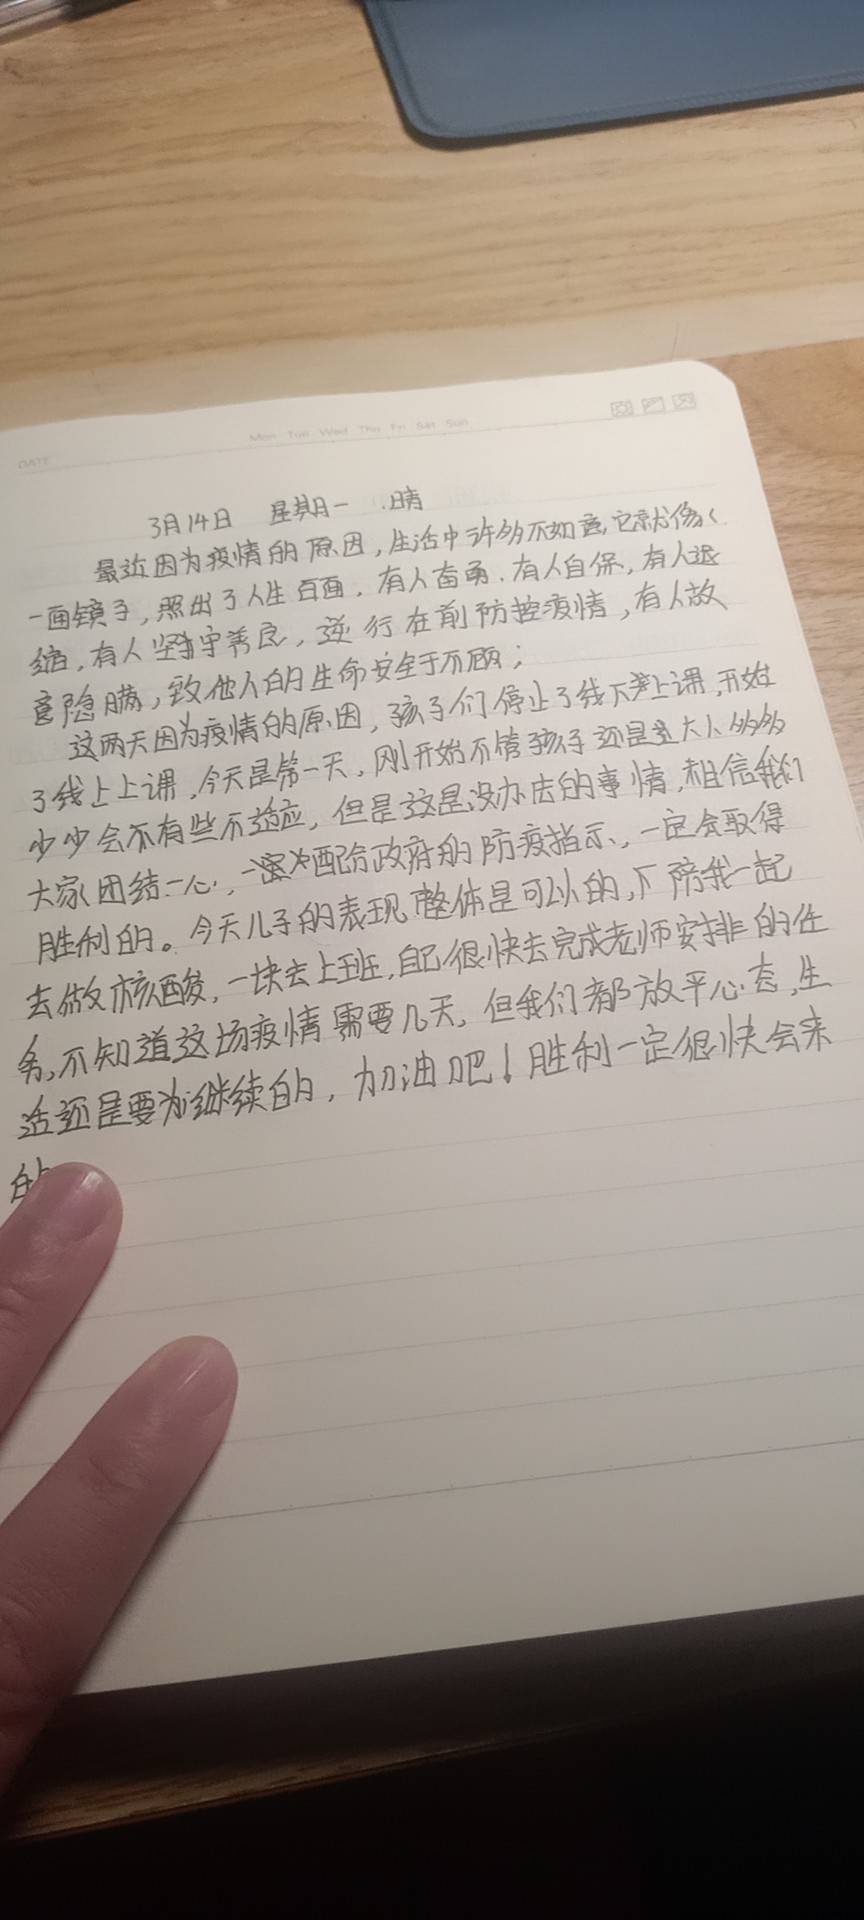 DATE
Mon Tue Wed Thu Fri Sat Sun
3月14日 星期一 晴
最近因为疫情的原因,生活中许多不如意,它就像
一面镜子,照出了人生百面,有人奋勇,有人自保,有人退
缩,有人坚守善良,逆行在前防控疫情,有人故
意隐瞒,致他人的生命安全于不顾;
这两天因为疫情的原因,孩子们停止了线下上课,开始
了线上上课,今天是第一天,刚开始不管孩子还是大人多多
少少会不有些不适应,但是这是没办法的事情,相信我们
大家团结一心,一定配合政府的防疫指示,一定会取得
胜利的。今天儿子的表现整体是可以的,下陪我一起
去做核酸,一块去上班,自己很快去完成老师安排的任
务,不知道这场疫情需要几天,但我们都放平心态,生
活还是要继续的,加油吧!胜利一定很快会来
的